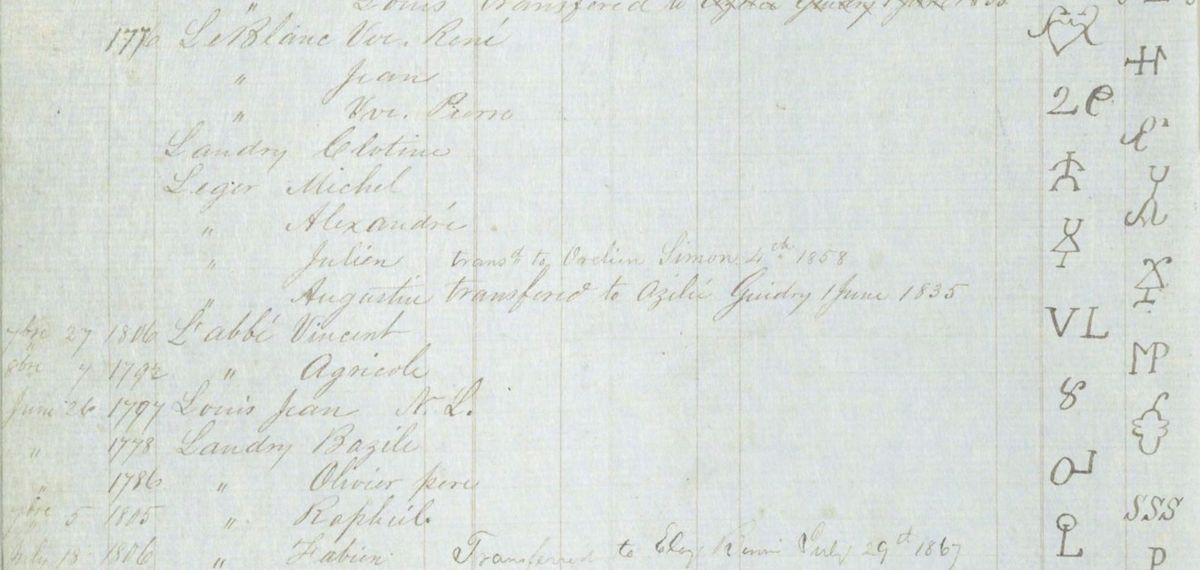 " Louis transfered to Azélie Guidry 1 June 1835
1770 LeBlanc Vve. René
" Jean
" Vve. Pierre
Landry Clotine
Leger Michel
" Alexandré
" Julien transd to Orelien Simon 4th 1858
" Augustin transfered to Azilié Guidry 1 June 1835
7bre 27 1806 L'abbé Vincent VL
8bre 7 1792 " Agricole MP
June 26 1797 Louis Jean N. L. 8
" 1778 Landry Bazile
" 1786 " Olivier pere
7bre 5 1805 " Raphúel SSS
July 18 1806 " Fabien Transferred to July 29st 1867 P